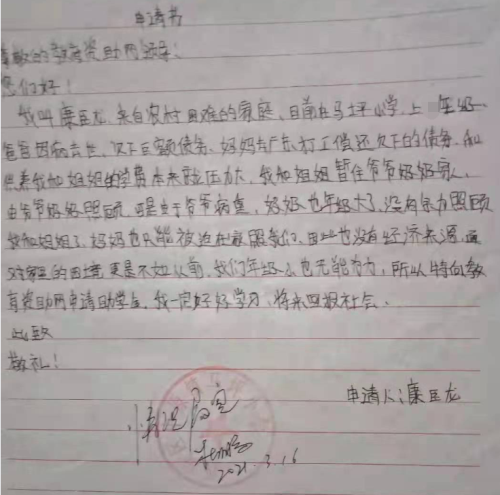 申请书
尊敬的教育资助网领导:
您们好!
我叫康巨龙,来自农村困难的家庭,目前在马坪小学,上 年级
爸爸因病去世,欠下巨额债务,妈妈去广东打工偿还欠下的债务,和
供养我和姐姐的学费本来就压力大,我和姐姐暂住爷爷奶奶家,
由爷爷奶奶照顾,可是由于爷爷病重,奶奶也年级大了,没有余力照顾
我和姐姐了,妈妈也只能被迫在家照我们,因此也没有经济来源,面
对家里的困境,更是不如从前,我们年级小也无能为力,所以特向教
育资助网申请助学金,我一定好好学习,将来回报社会。
此致
敬礼!
申请人:康巨龙
情况属实
2021.3.16